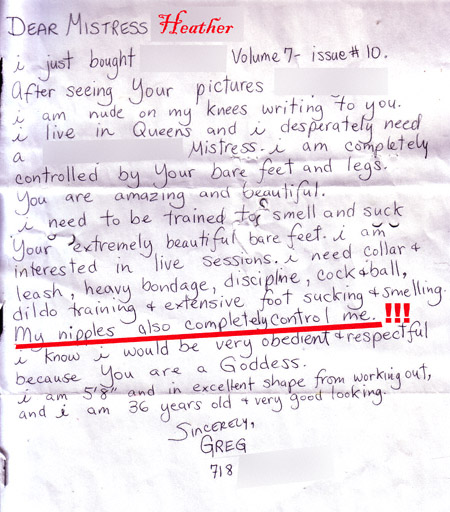 DEAR MISTRESS Heather
i just bought Volume 7- issue # 10.
After seeing Your pictures
i am nude on my knees writing to you.
i live in Queens and i desperately need
a Mistress. i am completely
controlled by Your bare feet and legs.
You are amazing and beautiful.
i need to be trained to smell and suck
Your extremely beautiful bare feet. i am
interested in live sessions. i need collar &
leash, heavy bondage, discipline, cock & ball,
dildo training & extensive foot sucking & smelling.
My nipples also completely control me. !!!
i know i would be very obedient & respectful
because You are a Goddess.
i am 5'8" and in excellent shape from working out,
and i am 36 years old & very good looking.
SINCERELY,
GREG
718